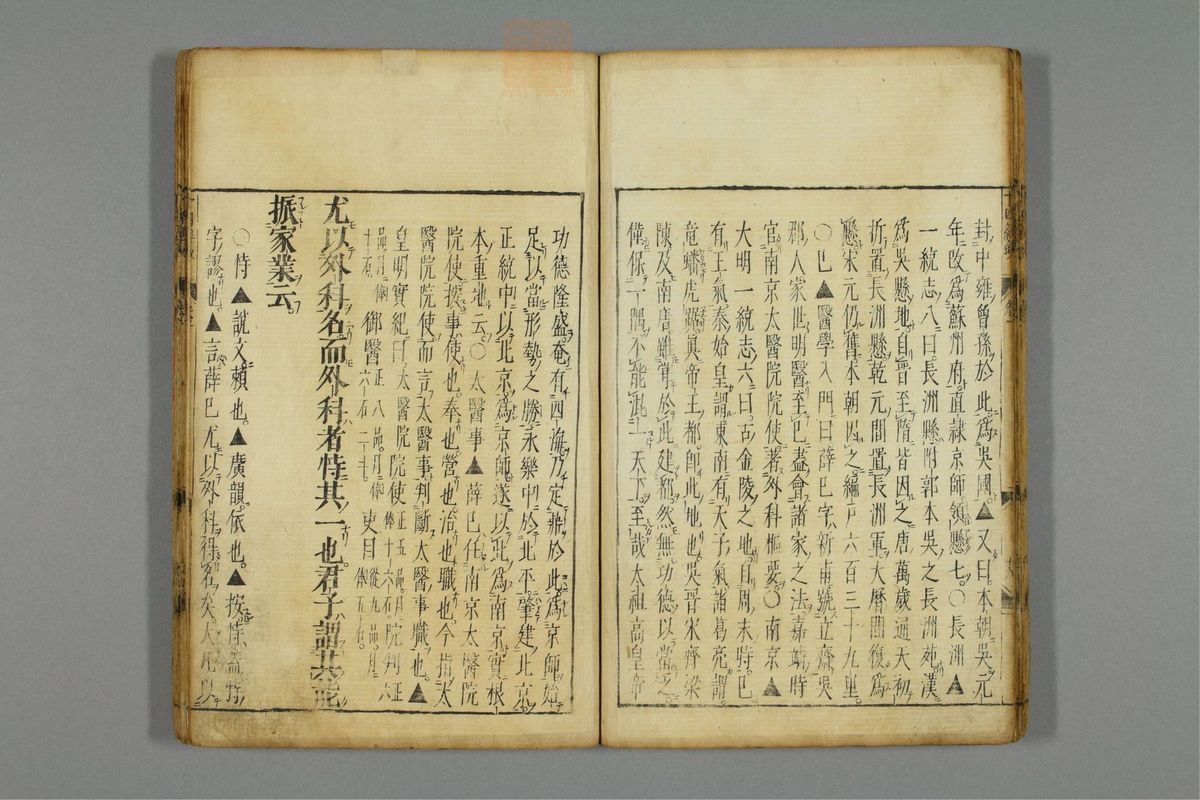 封中雍曾孫於此爲吳國▲又曰本朝吳元
年改爲蘇州府直隷京師領懸七〇長洲▲
一統志八曰長洲縣附郭本吳之長洲苑漢
爲吳縣地自晉至隋皆因之唐萬歲通天初
折置長洲懸乾元間置長洲軍大曆間復爲
懸宋元仍舊本朝因之編戸六百三十九里
〇巳▲醫學入門曰薛巳字新甫號立齋吳
郡人家世明醫至巳盖會諸家之法嘉靖時
官南京太醫院院使著外科樞要〇南京▲
大明一統志六曰古金陵之地自周末時巳
有王氣秦始皇謂東南有天子氣諸葛亮謂
竜蟠虎踞眞帝王都卽此地也吳晉宋齊梁
陳及南唐雖甞於此建都然無功德以當之
偉保一隅不能混一天下至哉太祖高皇帝
功德隆盛奄有四海乃定鼎於此爲京師始
足以當形勢之勝永樂中於北平肇建北京
正統中以北京爲京師遂以此爲南京實根
本重地云〇太醫事▲薛巳任南京太醫院
院使掞事使也奉也營也治也職也今指太
醫院院使而言太醫事判斷太醫事職也▲
皇明實紀曰太醫院院使正五品月俸十六石院判正六
品月俸十石御醫正八品月俸六石二斗吏目從九品月俸五石
尤以外科名而外科者恃其一也君子謂其能
振家業云
〇恃▲說文賴也▲廣韻依也▲按恃盖特
字謬也▲言薛巳尤以外科得名矣大凡以